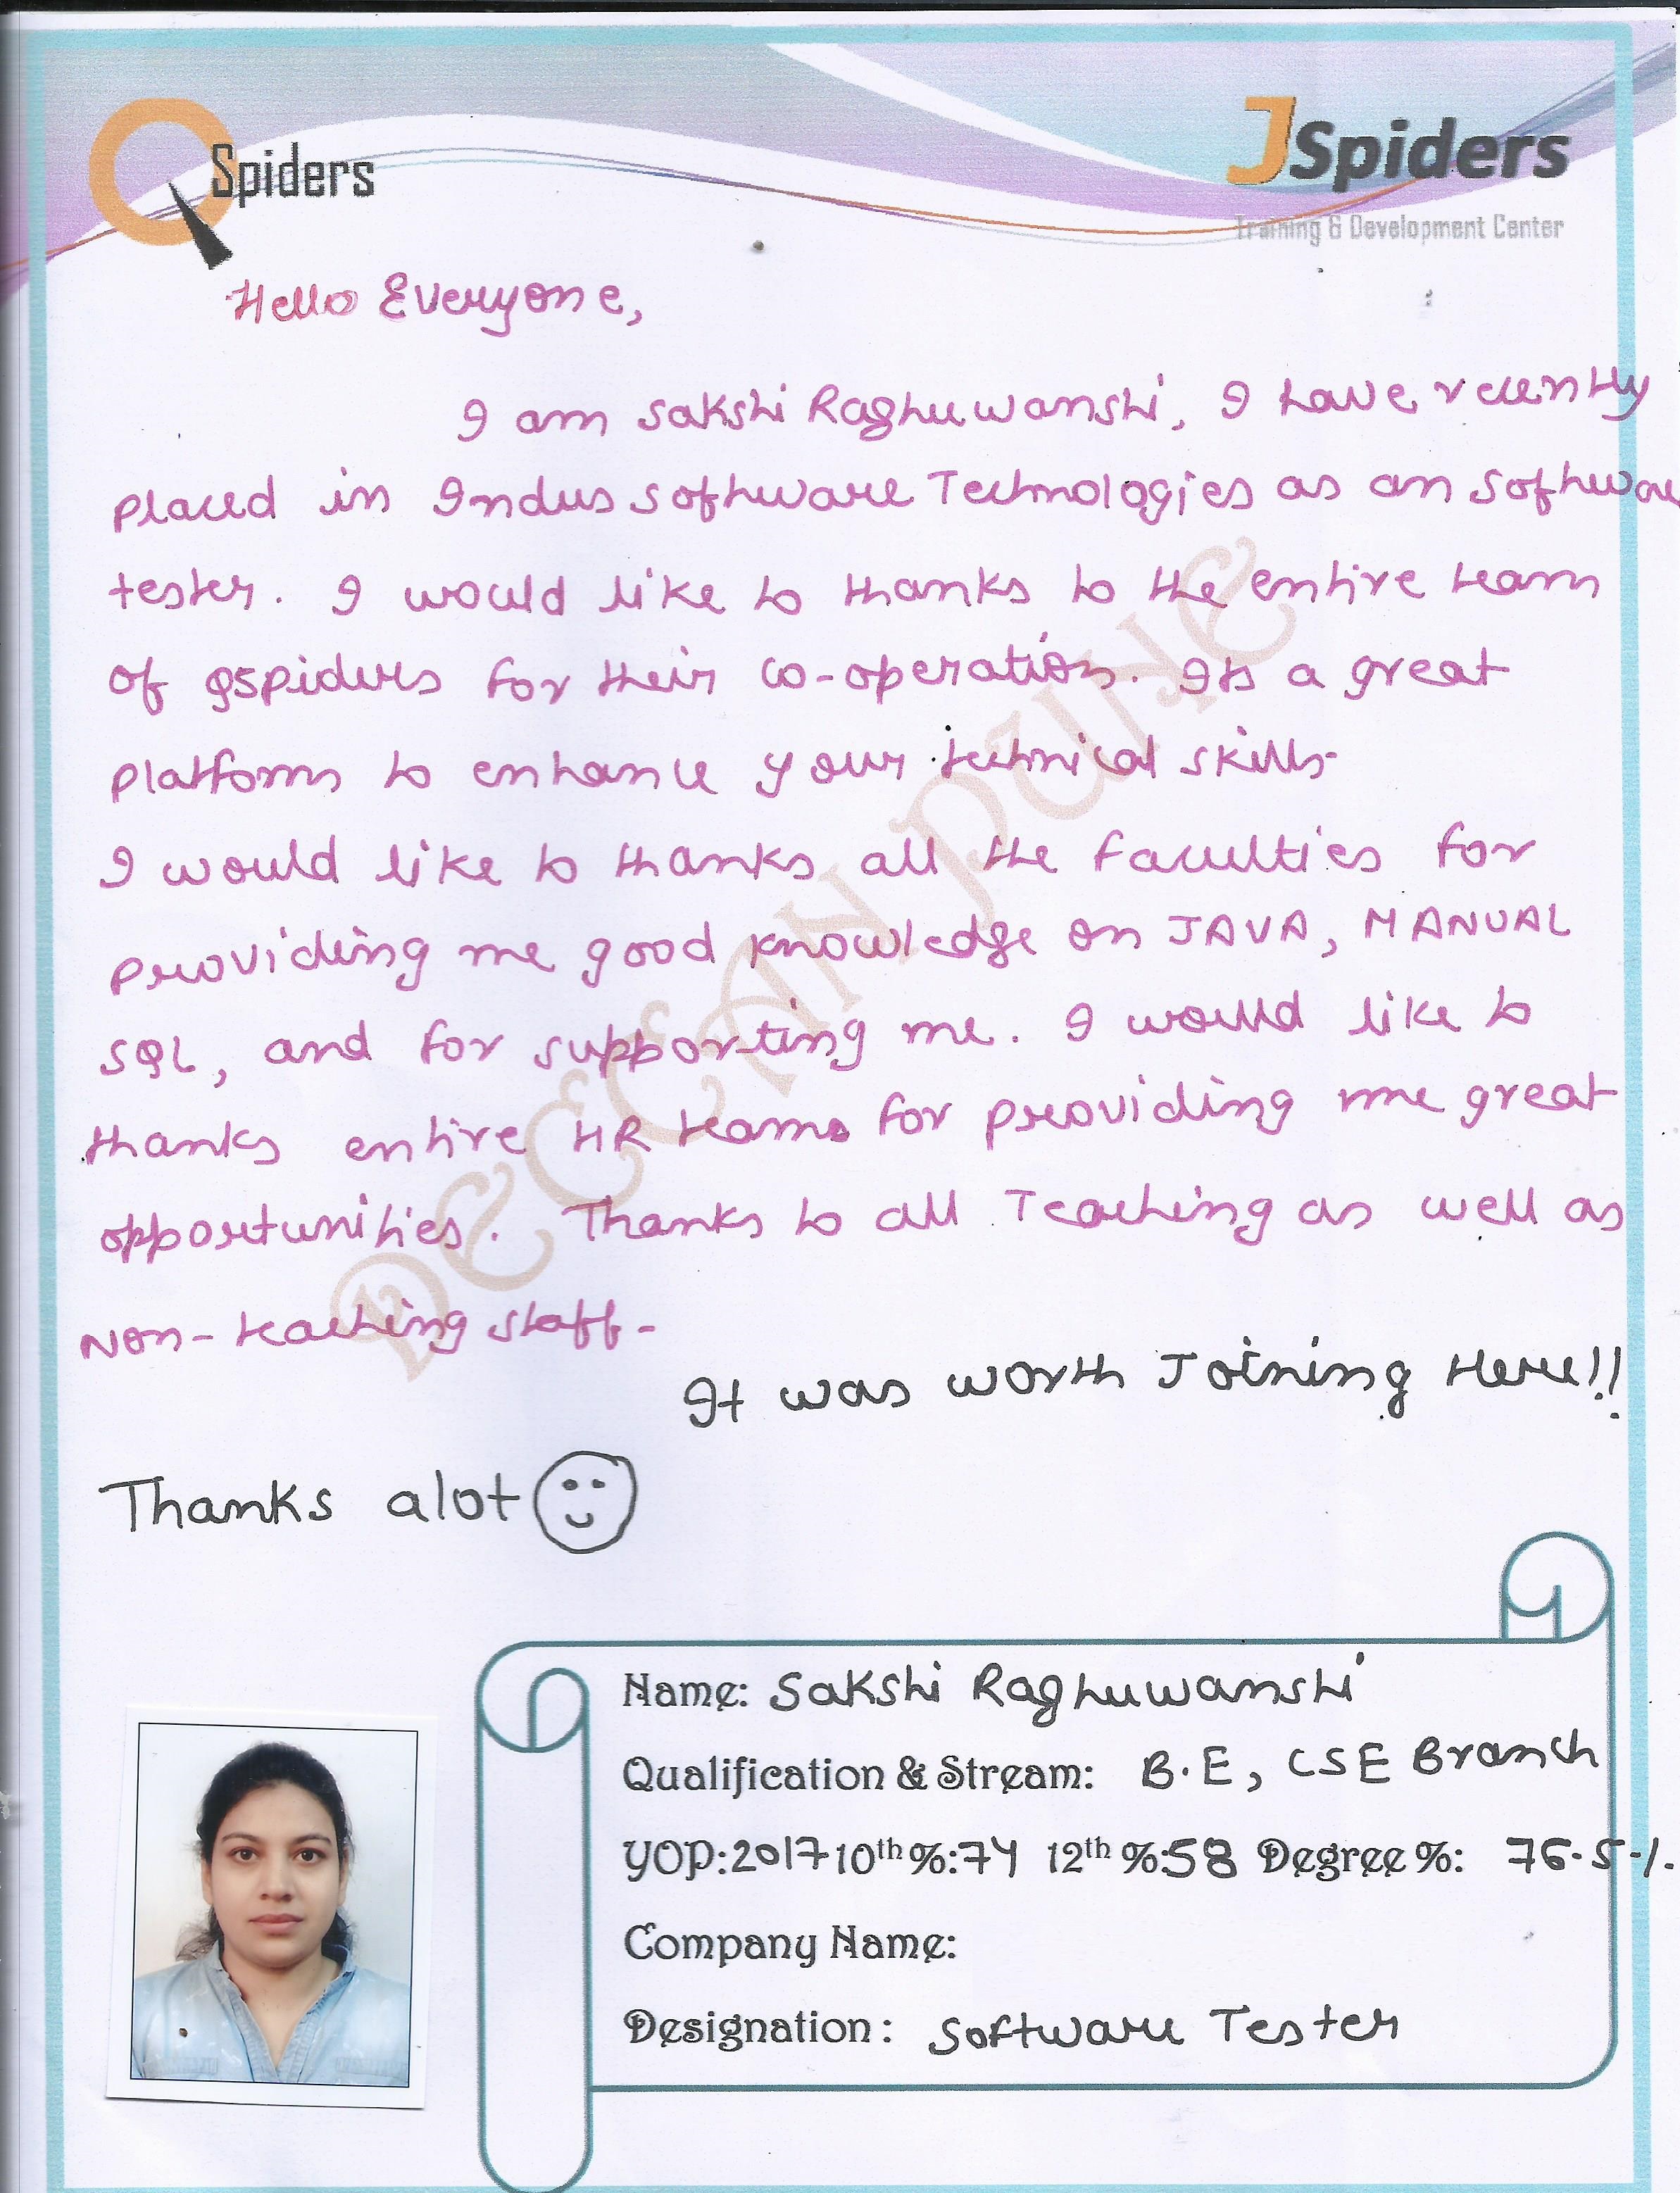 QSpiders
JSpiders
Training & Development Center
Hello Everyone,
I am Sakshi Raghuwanshi, I have recently
placed in Indus software Technologies as an software
tester. I would like to thanks to the entire team
of QSpiders for their co-operation. Its a great
platform to enhance your technical skills.
I would like to thanks all the faculties for
providing me good knowledge on JAVA, MANUAL
SQL, and for supporting me. I would like to
thanks entire HR team for providing me great
opportunities. Thanks to all Teaching as well as
Non-teaching staff.
It was worth Joining Here!!
Thanks alot
DECCAN PUNE
Name: Sakshi Raghuwanshi
Qualification & Stream: B.E, CSE Branch
YOP:2017 10th %:74 12th %:58 Degree %: 76.5%.
Company Name:
Designation: Software Tester